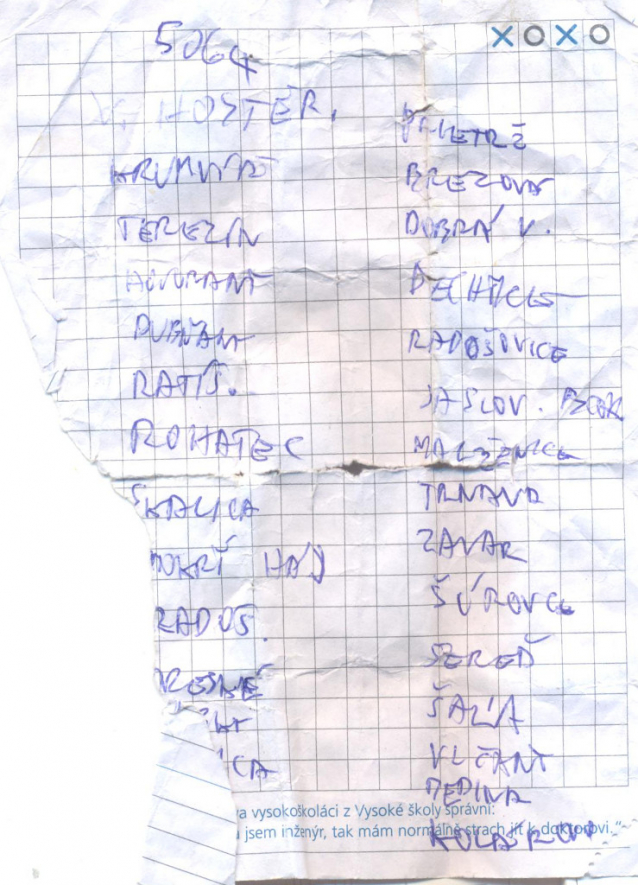 5064
V. HOSTĚR.
KRUMVÍŘ
TEREZÍN
HOVORANY
DUBŇANY
RATÍŠ.
ROHATEC
SKALICA
MOKRÝ HÁJ
RADOŠ.
ICA
PRIETRŽ
BREZOVÁ
DOBRÁ V.
DECHTICE
RADOŠOVICE
JASLOV. BOH
MALŽENICE
TRNAVA
ZAVAR
ŠÚROVCE
SEREĎ
ŠAĽA
VLČANY
NEDINA
KOLÁROVO
va vysokoškoláci z Vysoké školy správní:
jsem inženýr, tak mám normálně strach jít k doktorovi."